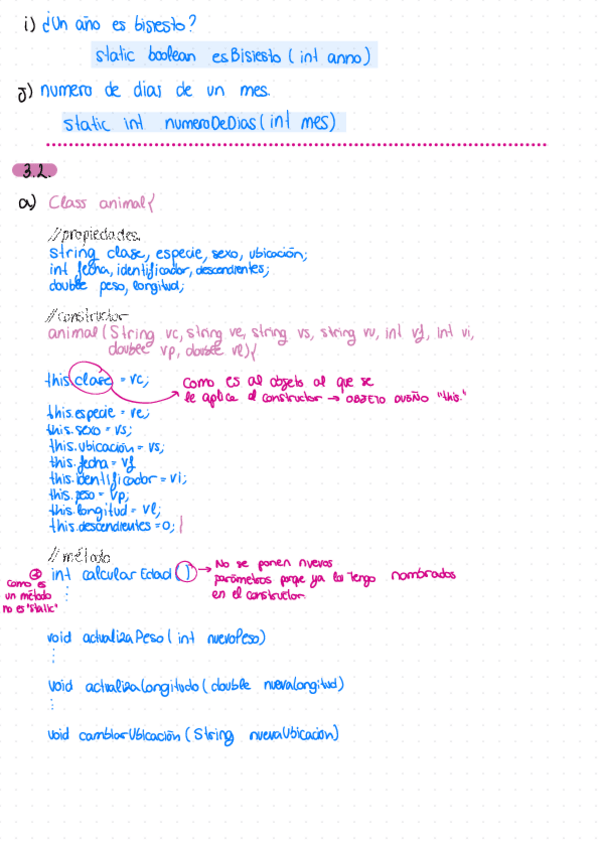 i) ¿Un año es bisiesto?
static boolean esBisiesto (int anno)
j) numero de dias de un mes.
static int numeroDeDias (int mes)
3.2.
a) Class animal{
//propiedades.
string clase, especie, sexo, ubicación;
int fecha, identificador, descendientes;
double peso, longitud;
//constructor
animal (String vc, string ve, string vs, string vu, int vf, int vi,
double vp, double vl){
this.clase = vc;
Como es al objeto al que se
le aplica el constructor → OBJETO DUEÑO "this."
this.especie = ve;
this.sexo = vs;
this.ubicación = vs;
this.fecha = vf
this.identificador = vi;
this.peso = vp;
this.longitud = vl;
this.descendientes = 0; }
//método
int calcular Edad ( )
→ No se ponen nuevos
parámetros porque ya los tengo nombrados
en el constructor.
* como es
un método
no es "static"
void actualizaPeso (int nuevoPeso)
void actualizaLongitudo (double nuevaLongitud)
void cambiarUbicación (String nuevaUbicacion)